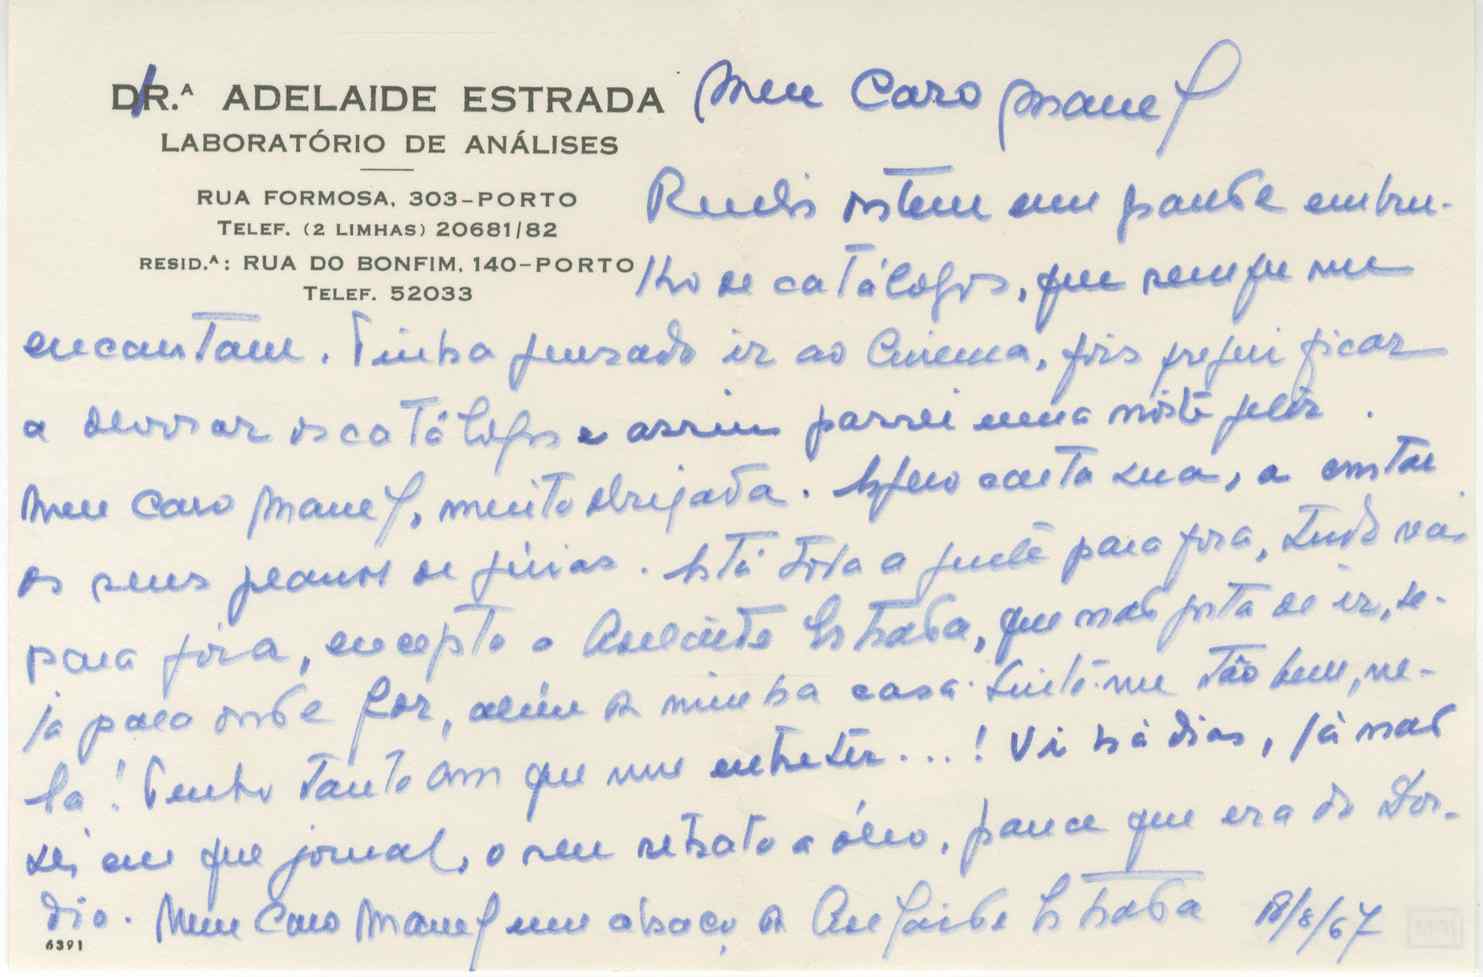 DR.ᴬ ADELAIDE ESTRADA
LABORATÓRIO DE ANÁLISES
RUA FORMOSA, 303-PORTO
TELEF. (2 LIMHAS) 20681/82
RESID.ᴬ: RUA DO BONFIM, 140-PORTO
TELEF. 52033
Meu Caro Manel
Recebi ontem um grande embru-
lho de catálogos, que sempre me
encantam. Tinha pensado ir ao Cinema, pois preferi ficar
a devorar os catálogos e assim passei uma noite feliz.
Meu Caro Manel, muito obrigada. Espero carta sua, a contar
os seus planos de férias. Está toda a gente para fora, tudo vai
para fora, excepto a Adelaide Estrada, que não gosta de ir, se-
ja para onde for, além da minha casa. Sinto-me tão bem, ne-
la! Tenho tanto com que me entreter...! Vi há dias, já não
sei em que jornal, o seu retrato a óleo, parece que era do Dór-
dio. Meu Caro Manel um abraço da Adelaide Estrada 18/8/67
6391